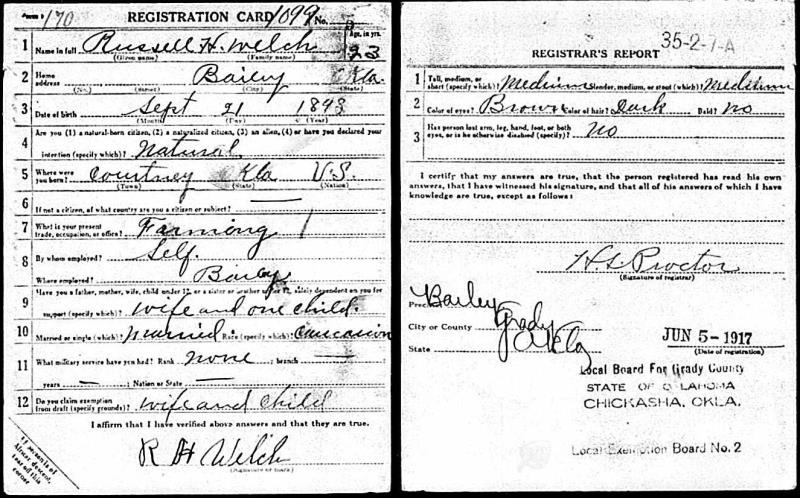 Form 1 170 REGISTRATION CARD 1099 No. 5
1 Name in full Russell H. Welch Age, in yrs. 23
(Given name) (Family name)
2 Home address Bailey Okla.
(No.) (Street) (City) (State)
3 Date of birth Sept 21 1893
(Month) (Day) (Year)
4 Are you (1) a natural-born citizen, (2) a naturalized citizen, (3) an alien, (4) or have you declared your
intention (specify which)? Natural
5 Where were you born? Courtney Okla U.S.
(Town) (State) (Nation)
6 If not a citizen, of what country are you a citizen or subject?
7 What is your present trade, occupation, or office? Farming
8 By whom employed? Self.
Where employed? Bailey
9 Have you a father, mother, wife, child under 12, or a sister or brother under 12, solely dependent on you for
support (specify which)? Wife and one child.
10 Married or single (which)? Married Race (specify which)? Caucasian
11 What military service have you had? Rank None ; branch —
years — ; Nation or State —
12 Do you claim exemption from draft (specify grounds)? Wife and Child
I affirm that I have verified above answers and that they are true.
R H Welch
(Signature or mark)
If person is of African descent, tear off this corner
35-2-7-A
REGISTRAR'S REPORT
1 Tall, medium, or short (specify which)? Medium Slender, medium, or stout (which)? Medium
2 Color of eyes? Brown Color of hair? Dark Bald? No
3 Has person lost arm, leg, hand, foot, or both eyes, or is he otherwise disabled (specify)? No
I certify that my answers are true, that the person registered has read his own
answers, that I have witnessed his signature, and that all of his answers of which I have
knowledge are true, except as follows:
H. S. Proctor
(Signature of registrar)
Precinct Bailey
City or County Grady
State Okla
JUN 5 - 1917
(Date of registration)
Local Board For Grady County
STATE OF OKLAHOMA
CHICKASHA, OKLA.
Local Exemption Board No. 2